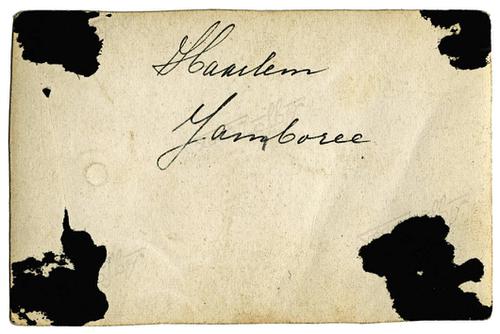 Haarlem
Jamboree